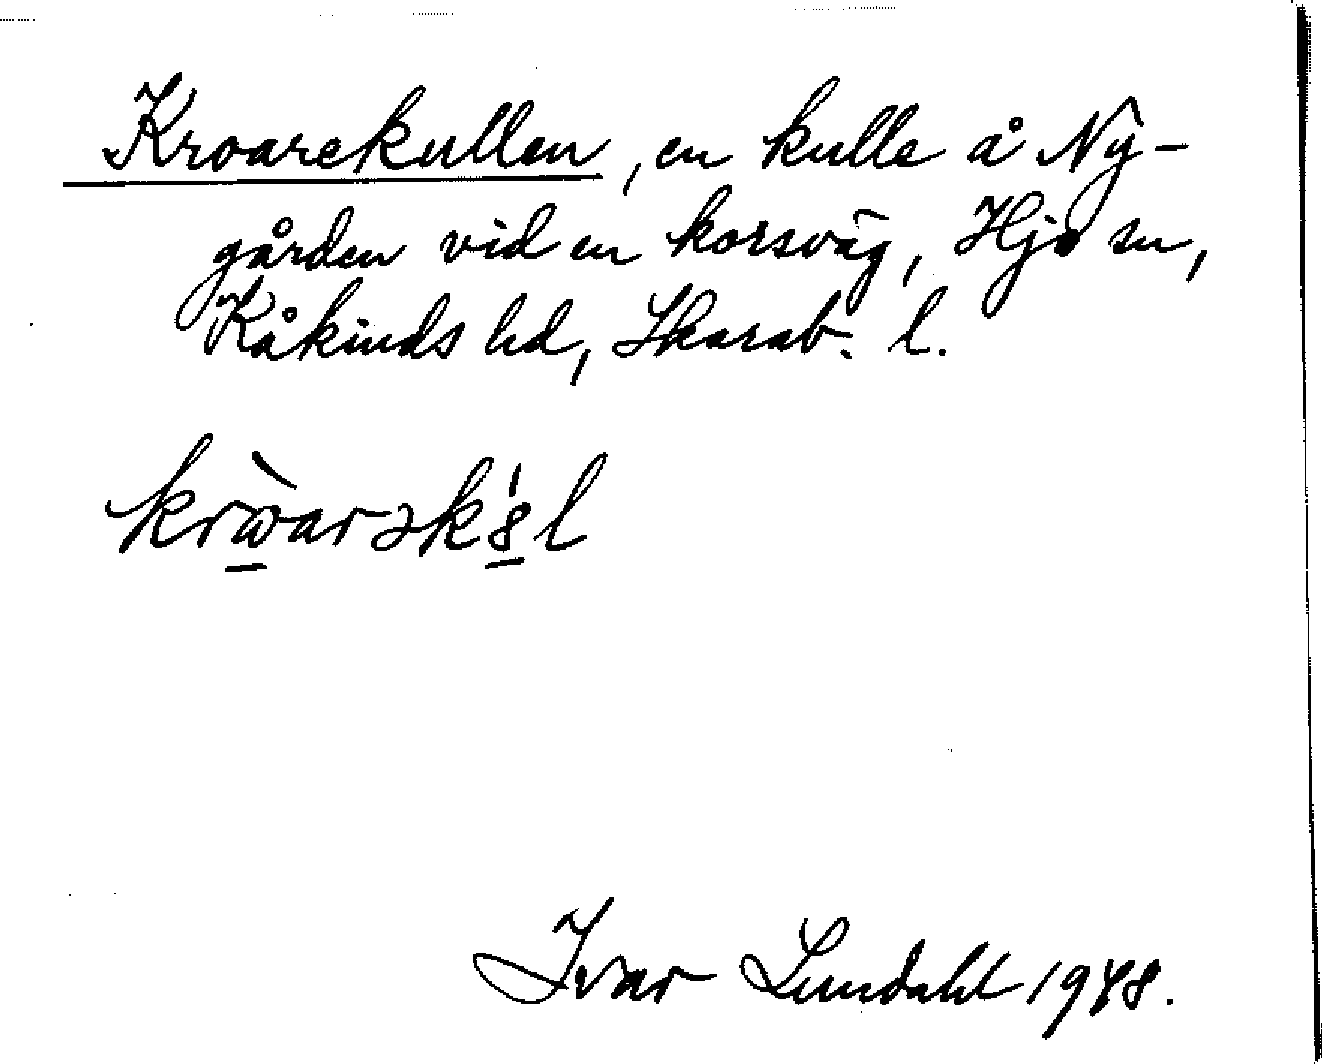 Kroarekullen, en kulle å Ny-
gården vid en korsväg, Hjo sn,
Kåkinds hd, Skarab. l.
Ivar Lundahl 1948.